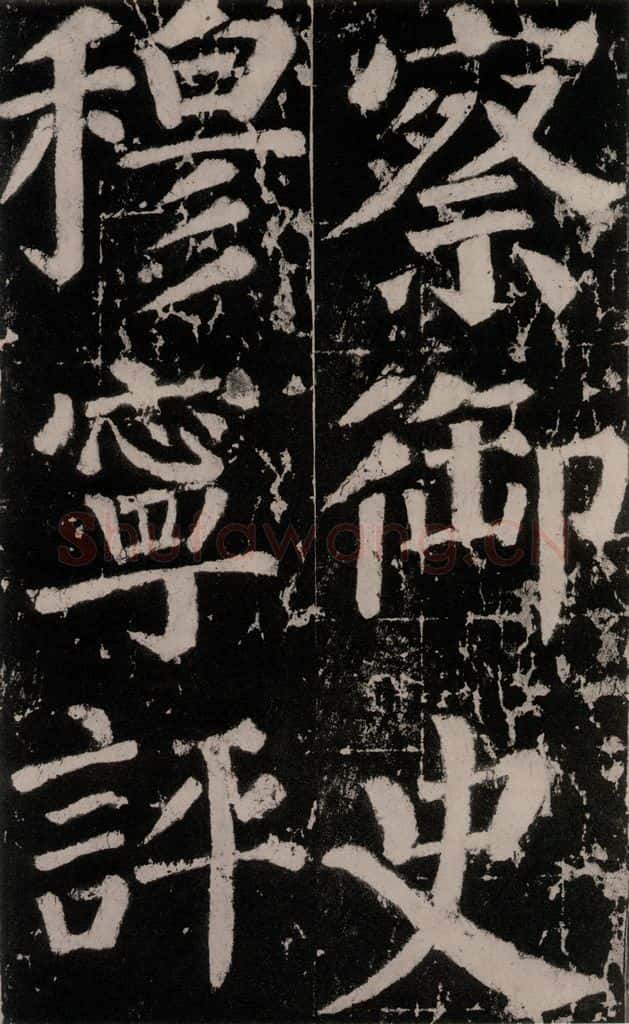 察御史
穆寧評
Shufawang.CN